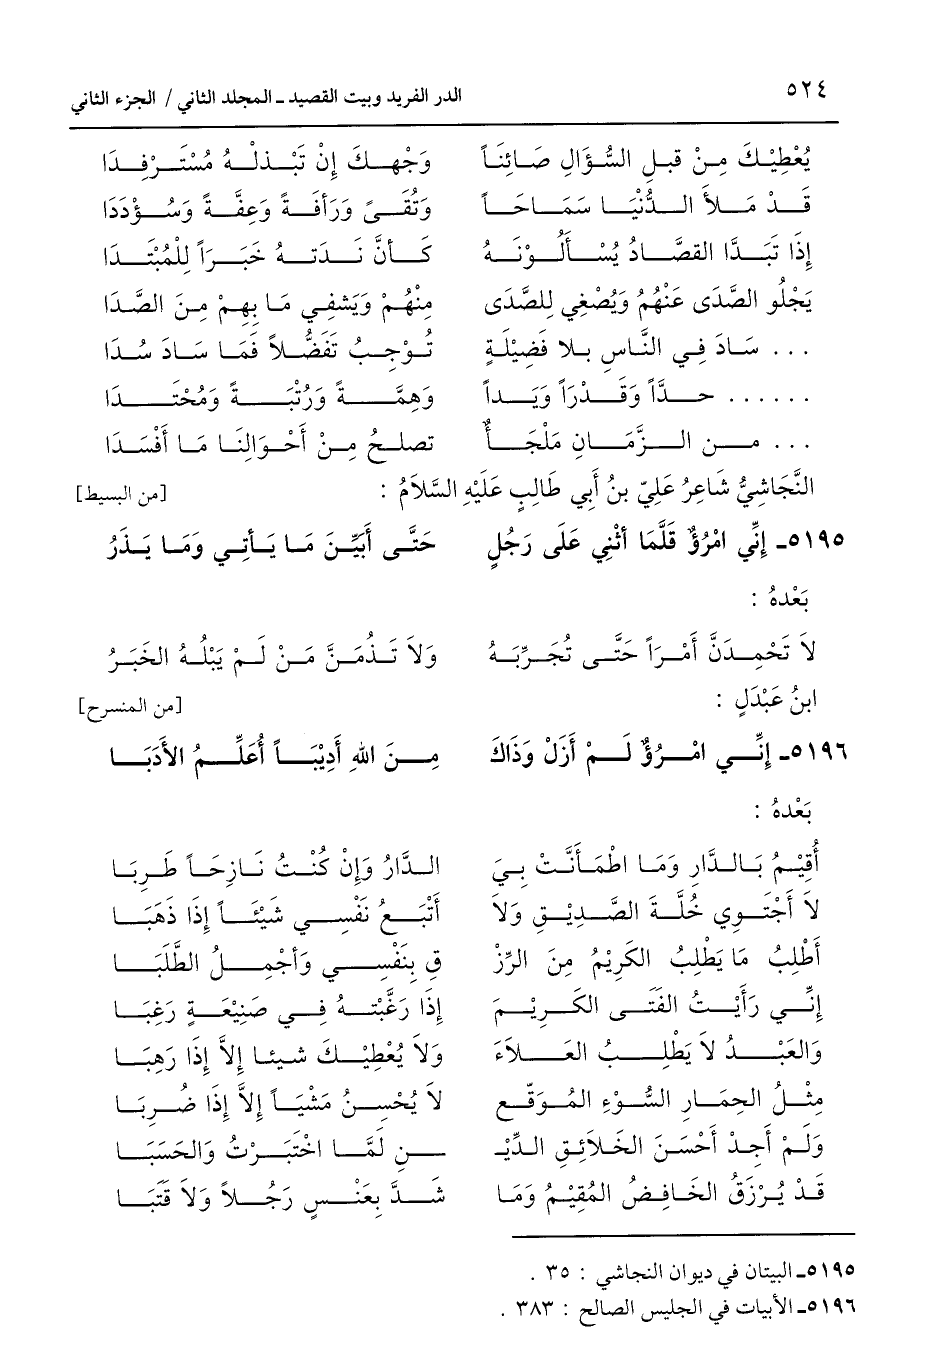 ٥٢٤ الدر الفريد وبيت القصيد ـ المجلد الثاني / الجزء الثاني
يُعْطِيْكَ مِنْ قَبلِ السُّؤَالِ صَائِنَاً وَجْهِكَ إِنْ تَبْذلْهُ مُسْتَرْفِدَا
قَدْ مَلأَ الدُّنْيَا سَمَاحَاً وَتُقَىً وَرَأفَةً وَعِفَّةً وَسُؤْدَدَا
إِذَا تَبَدَّا القصَّادُ يُسْأَلُوْنَهُ كَأنَّ نَدتهُ خَبَرَاً لِلْمُبْتَدَا
يَجْلُو الصَّدَى عَنْهُمُ وَيُصْغِي لِلصَّدَى مِنْهُمْ وَيَشْفِي مَا بِهِمْ مِنَ الصَّدَا
... سَادَ فِي النَّاسِ بِلا فَضِيْلَةٍ تُوْجِبُ تَفَضُّلاً فَمَا سَادَ سُدَا
...... جدَّاً وَقَدْرَاً وَيَدَاً وَهِمَّةً وَرُتْبَةً وَمُحْتِدَا
... من الزَّمَانِ مَلْجَأٌ تصلحُ مِنْ أَحْوَالِنَا مَا أَفْسَدَا
النَّجَاشِيُّ شَاعِرُ عَلِيّ بنُ أَبِي طَالِبٍ عَلَيْهِ السَّلاَمُ : [من البسيط]
٥١٩٥ـ إِنِّي امْرُؤٌ قَلَّمَا أُثْنِي عَلَى رَجُلٍ حَتَّى أُبَيِّنَ مَا يَأتِي وَمَا يَذَرُ
بَعْدهُ :
لاَ تَحْمِدَنَّ أَمْرَاً حَتَّى تُجَرِّبَهُ وَلاَ تَذُمَنَّ مَنْ لَمْ يَبْلُهُ الخَبَرُ
ابنُ عَبْدَلٍ : [من المنسرح]
٥١٩٦ـ إِنِّي امْرُؤٌ لَمْ أَزَلْ وَذَاكَ مِنَ اللهِ أَدِيْبَاً أُعَلِّمُ الأَدَبَا
بَعْدهُ :
أُقِيْمُ بَالدَّارِ وَمَا اطْمَأنَّتْ بِيَ الدَّارُ وَإِنْ كُنْتُ نَازِحَاً طَرِبَا
لاَ أَجْتَوِي خُلَّةَ الصَّدِيْقِ وَلاَ أُتْبَعُ نَفْسِي شَيْئَاً إِذَا ذَهَبَا
أَطْلِبُ مَا يَطْلِبُ الكَرِيْمُ مِنَ الرِّزْ قِ بِنَفْسِي وَأُجْمِلُ الطَّلَبَا
إِنِّي رَأَيْتُ الفَتَى الكَرِيْمَ إِذَا رَغَّبْتهُ فِي صَنِيْعَةٍ رَغِبَا
وَالعَبْدُ لاَ يَطْلِبُ العَلاَءَ وَلاَ يُعْطِيْكَ شيئا إِلاَّ إِذَا رَهِبَا
مِثْلُ الحِمَارِ السُّوْءِ المُوَقّعِ لاَ يُحْسِنُ مَشْيَاً إِلاَّ إِذَا ضُرِبَا
وَلَمْ أَجِدْ أَحْسَنَ الخَلاَئِقِ الدِّيْـ ـنِ لَمَّا اخْتَبَرْتُ وَالحَسَبَا
قَدْ يُرْزَقُ الخَافِضُ المُقِيْمُ وَمَا شَدَّ بِعَنْسٍ رَجُلاً وَلاَ قَتَبَا
٥١٩٥ـ البيتان في ديوان النجاشي : ٣٥ .
٥١٩٦ـ الأبيات في الجليس الصالح : ٣٨٣ .